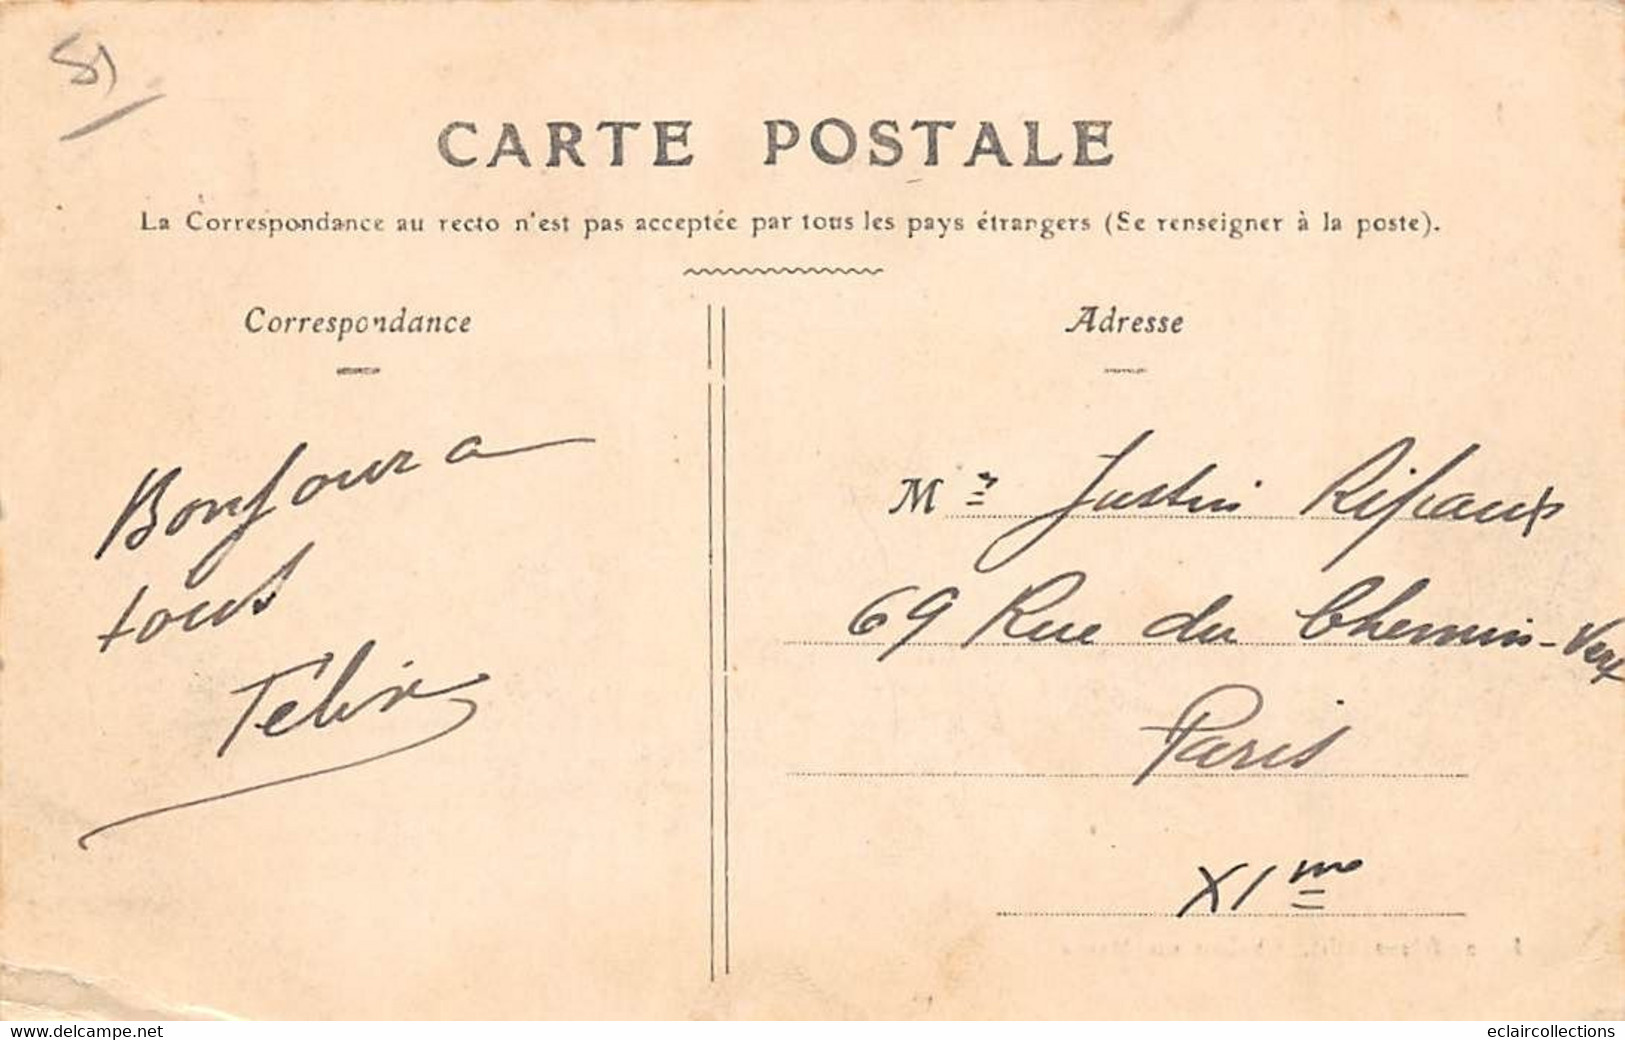 51
CARTE POSTALE
La Correspondance au recto n'est pas acceptée par tous les pays étrangers (Se renseigner à la poste).
Correspondance
Adresse
Bonjour a
tous
Félix
Mr Justin Ripaux
69 Rue du Chemin-Vert
Paris
XIme
www.delcampe.net
eclaircollections